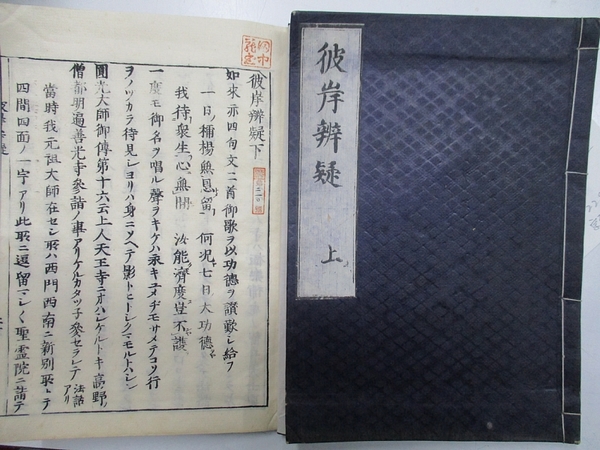 彼岸辨疑
上
彼岸辨疑下
如來亦四句文二首御歌ヲ以功德ヲ讃歎シ給フ
一日稱揚無恩留 何況七日大功德
我待衆生心無間 汝能濟度豈不護
一度モ御名ヲ唱ル聲ヲキケハ永キユメヂモサメテコソ行
ヲノツカラ待見シヨリハ身ニソヘテ影トヒトシクマモルトハシレ
圓光大師御傳第十六云上人天王寺ニオハシケルトキ高野ノ
僧都明遍善光寺參詣ノ事アリケルカタツ子參セラレテ法話アリ
當時我元祖大師在セシ所ハ西門西南ニ新別所トテ
四間四面ノ一宇アリ此所ニ逗留マシク聖靈院ニ詣テ